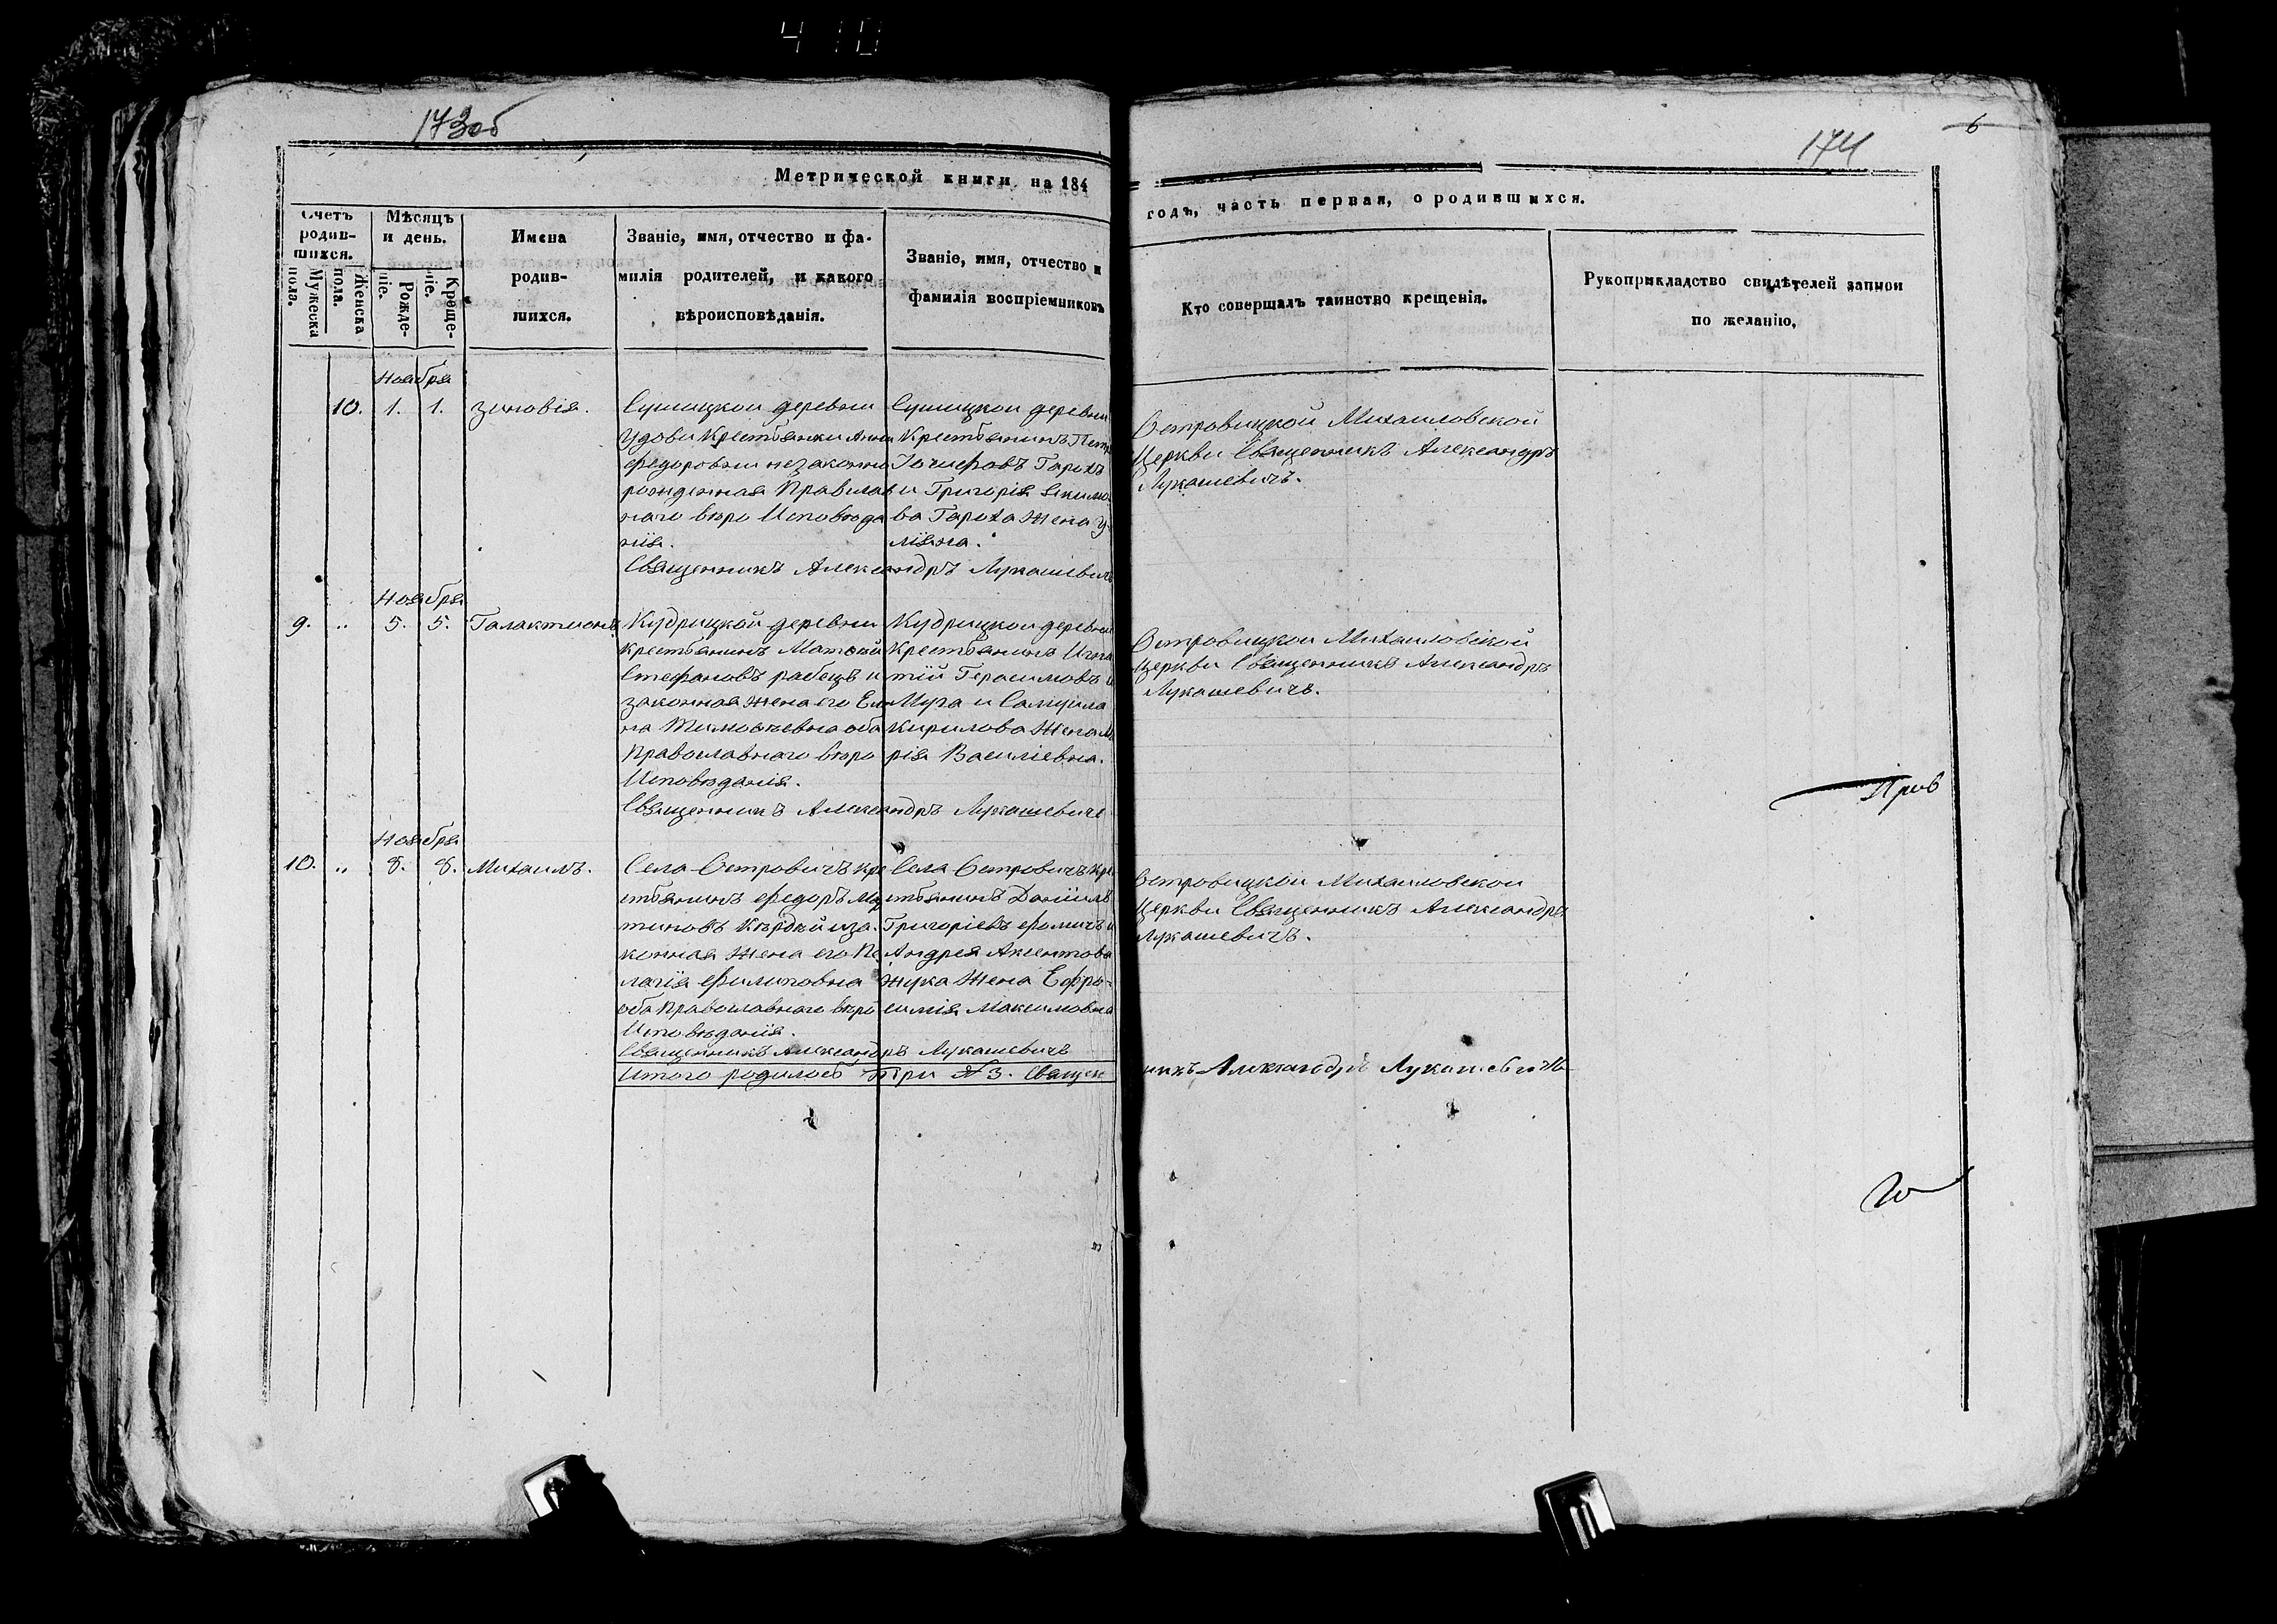 410
173об
174
6
Метрической книги на 184
годъ, часть первая, о родившихся.
Счетъ родив-шихся.
Мужеска пола.
Женска пола.
Мѣсяцъ и день.
Рожде-ніе.
Креще-ніе.
Имена
родив-
шихся.
Званіе, имя, отчество и фа-
милія родителей, и какого
вѣроисповѣданія.
Званіе, имя, отчество и
фамилія воспріемниковъ
Кто совершалъ таинство крещенія.
Рукоприкладство свидѣтелей записи
по желанію.
Ноября
10. 1. 1. Зиновія.
Сушицкой деревни
Удови Крестьянки Анны
Федоровни незаконно
рожденная Православ
наго вѣро Исповѣда
нія.
Сушицкой деревни
Крестьянинъ Петръ
Іосифовъ Гарохъ
и Григорія Якимо
ва Гароха Жена У
ліяна.
Священникъ Александръ Лукашевичъ
Островицкой Михаиловской
Церкви Священникъ Александръ
Лукашевичъ.
Ноября
9. „ 5. 5. Галактионъ
Кудрицкой деревни
Крестьянинъ Матвей
Стефановъ рабецъ и
законная Жена его Еле
на Тимофеевна оба
Православнаго вѣро
Исповѣданія.
Кудрицкой деревни
Крестьянинъ Игна
тій Герасимовъ
Мура и Самуила
Кирилова Жена Ма
рія Василіевна.
Священникъ Александръ Лукашевичъ
Островицкой Михаиловской
Церкви Священникъ Александръ
Лукашевичъ.
Ноября
10. „ 8. 8. Михаилъ.
Села Островичъ кре
стьянинъ Федоръ Мар
тиновъ и за
конная Жена его Пе
лагія Филиповна
оба Православнаго вѣро
Исповѣданія.
Села Островичъ Кре
стьянинъ Даніилъ
Григоріевъ Фомичъ и
Андрея Аксентова
Жука Жена Ефро
синія Максимовна
Священникъ Александръ Лукашевичъ
Островицкой Михаиловской
Церкви Священникъ Александръ
Лукашевичъ.
Итого родилось Три № 3. Священ
никъ Александръ Лукашевичъ